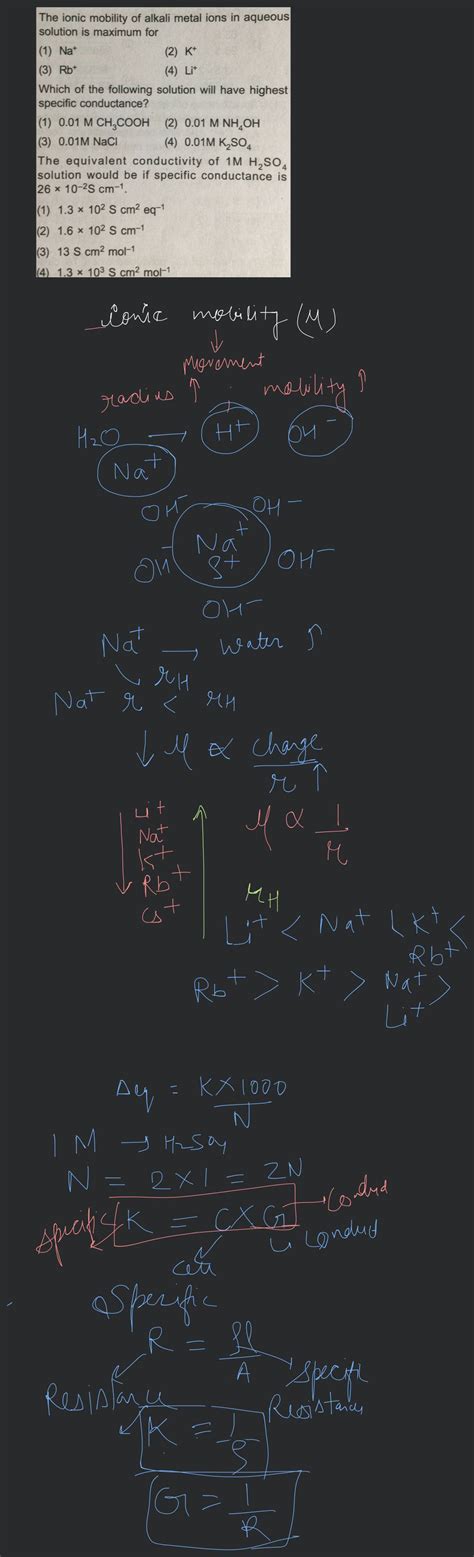 The ionic mobility of alkali metal ions in aqueous
solution is maximum for
(1) Na⁺ (2) K⁺
(3) Rb⁺ (4) Li⁺
Which of the following solution will have highest
specific conductance?
(1) 0.01 M CH₃COOH (2) 0.01 M NH₄OH
(3) 0.01M NaCl (4) 0.01M K₂SO₄
The equivalent conductivity of 1M H₂SO₄
solution would be if specific conductance is
26 × 10⁻²S cm⁻¹.
(1) 1.3 × 10² S cm² eq⁻¹
(2) 1.6 × 10² S cm⁻¹
(3) 13 S cm² mol⁻¹
(4) 1.3 × 10³ S cm² mol⁻¹
ionic mobility (M)
↓
Movement
radius ↑ mobility ↑
H₂O → H⁺ OH⁻
Na⁺
OH⁻ OH⁻
Na⁺
OH⁻ δ+ OH⁻
OH⁻
Na⁺ → water ↑
↘ rH
Na⁺ r < rH
↓ μ ∝ charge
r ↑
Li⁺
Na⁺ μ ∝ 1
K⁺ r
Rb⁺
Cs⁺ μH
Li⁺ < Na⁺ < K⁺ <
Rb⁺
Rb⁺ > K⁺ > Na⁺ >
Li⁺
= K×1000
N
1 M → H₂SO₄
N = 2×1 = 2N
Specific K = C×G →
↳ Conduct
Cell
Specific
R = ρl
A
Resistance Specific
Resistance
K = 1
ρ
G = 1
R